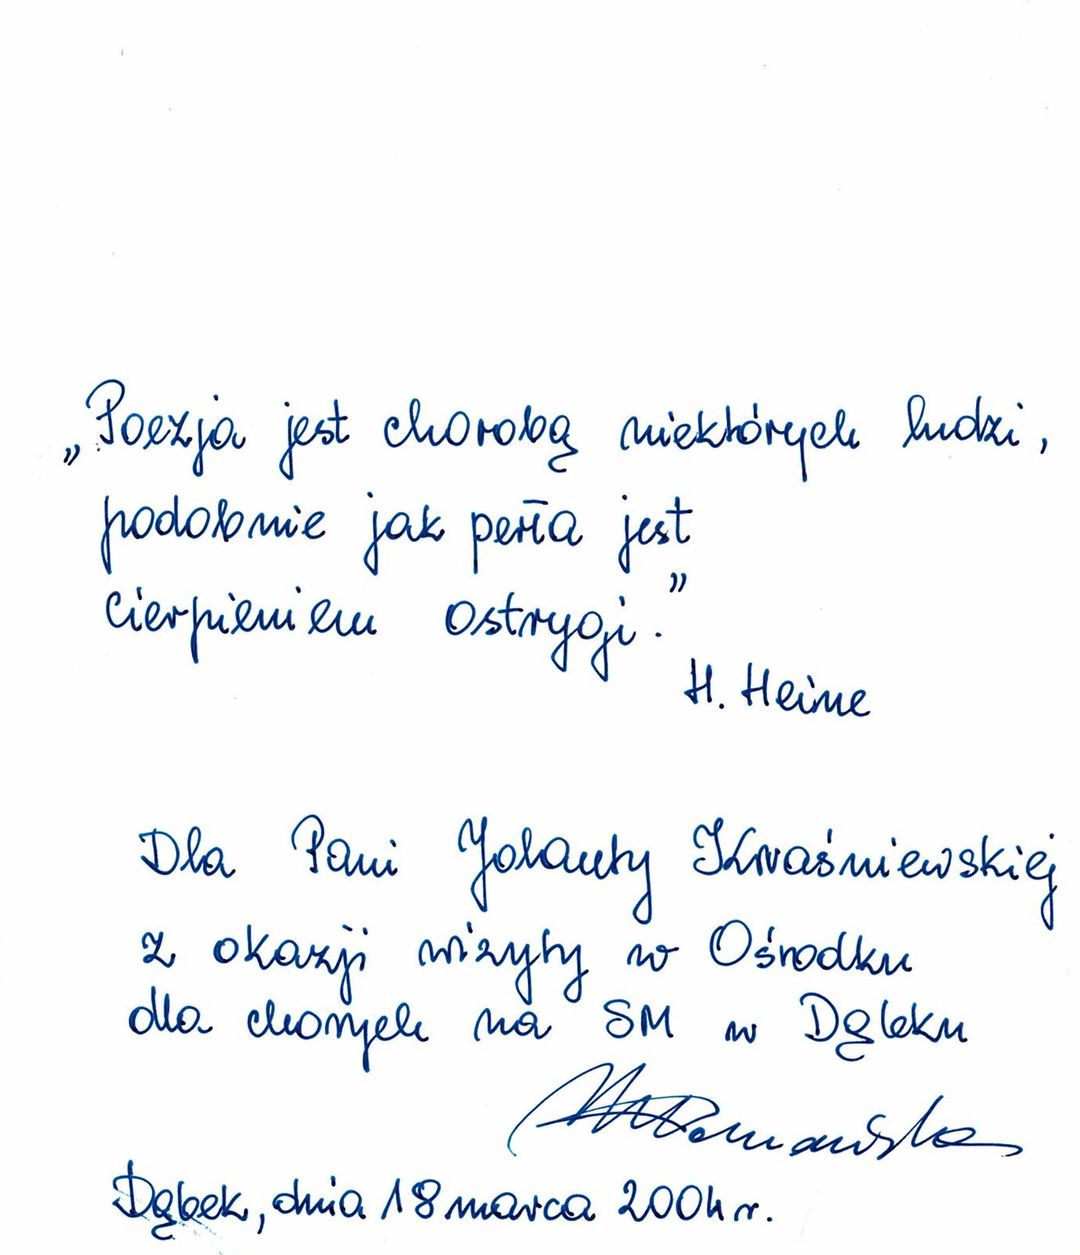 „Poezja jest chorobą niektórych ludzi,
podobnie jak perła jest
cierpieniem ostrygi.”
H. Heine
Dla Pani Jolanty Kwaśniewskiej
z okazji wizyty w Ośrodku
dla chorych na SM w Dąbku
Dąbek, dnia 18 marca 2004 r.